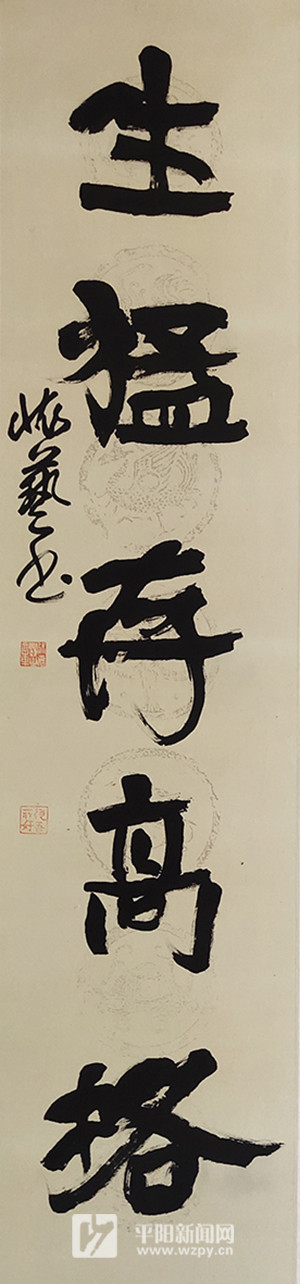 生猛存高格
艺书
平阳新闻网
www.wzpy.cn